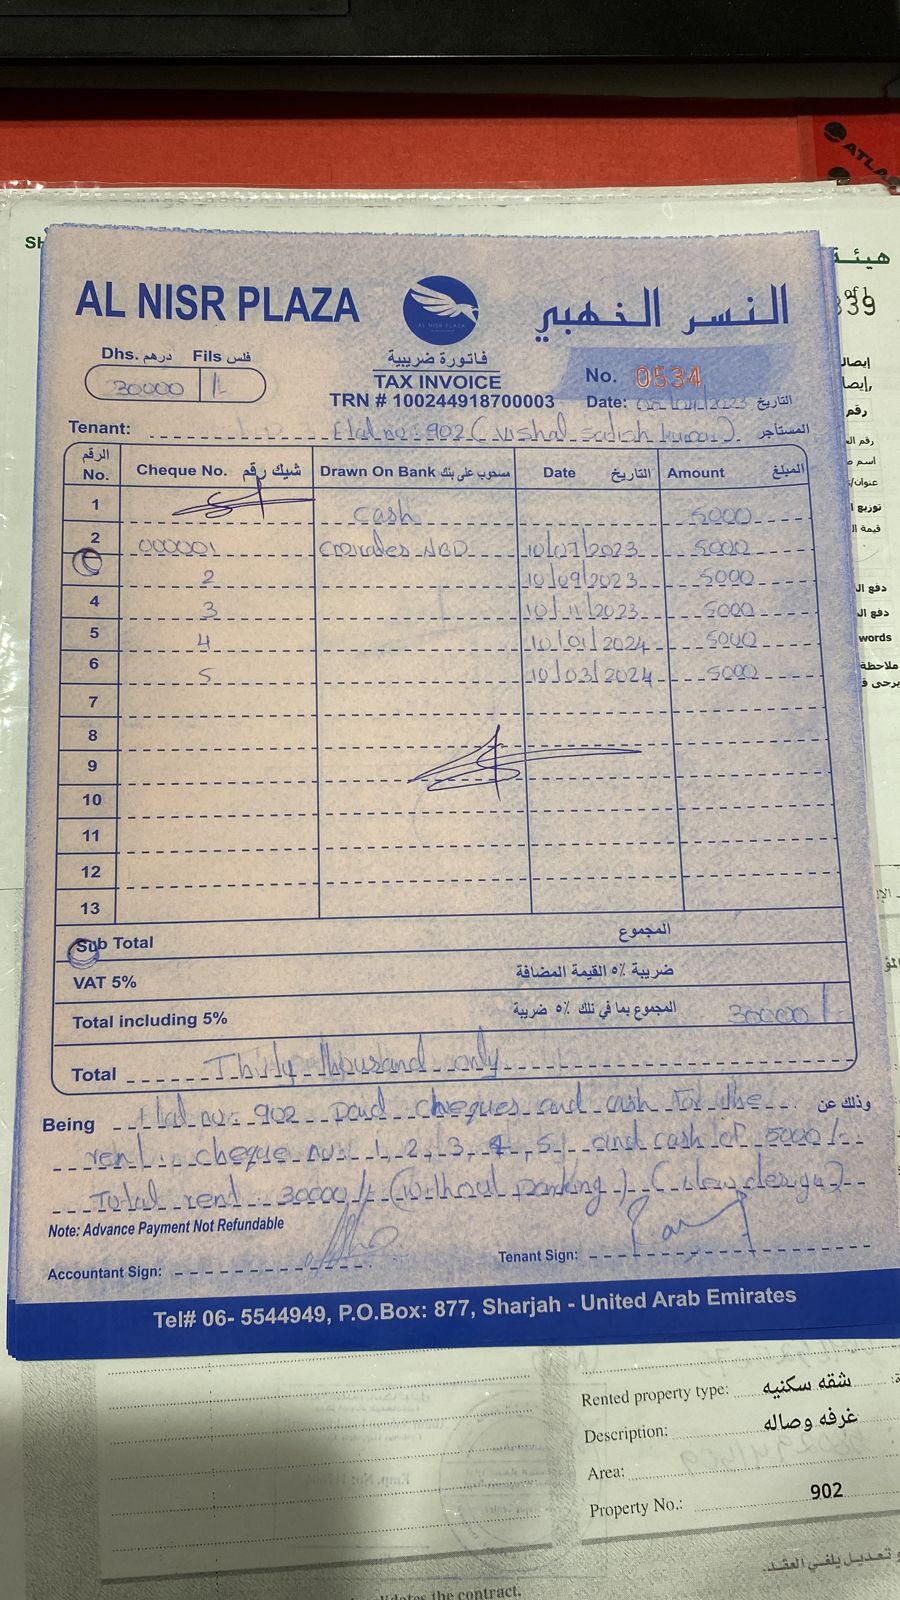 ATLA
SH
هيئة
of 1
339
AL NISR PLAZA
النسر الذهبي
AL NISR PLAZA
فاتورة ضريبية
TAX INVOICE
TRN # 100244918700003
Dhs. درهم Fils فلس
30000 /-
No. 0534
Date: 05/04/2023 التاريخ
Tenant: Flat no: 902 (vishal satish kumar). المستأجر
الرقم No. Cheque No. شيك رقم Drawn On Bank مسحوب على بنك Date التاريخ Amount المبلغ
1 cash 5000
2 000001 Emirates NBD 10/07/2023 5000
2 10/09/2023 5000
4 3 10/11/2023 5000
5 4 10/01/2024 5000
6 5 10/03/2024 5000
7
8
9
10
11
12
13
Sub Total المجموع
VAT 5% ضريبة ٥٪ القيمة المضافة
Total including 5% المجموع بما في تلك ٥٪ ضريبة 30000/
Total Thirty thousand only
Being Flat no: 902 paid cheques and cash for the وذلك عن
rent. cheque no: 1, 2, 3, 4, 5, and cash of 5000/-
Total rent 30000/- (without parking)
Note: Advance Payment Not Refundable
Accountant Sign:
Tenant Sign:
Tel# 06- 5544949, P.O.Box: 877, Sharjah - United Arab Emirates
إيصال
رقم
دفع ال
دفع ال
words
ملاحظة
Rented property type: شقه سكنيه
Description: غرفه وصاله
Area:
Property No.: 902
و تعديل يلغي العقد.
the contract.